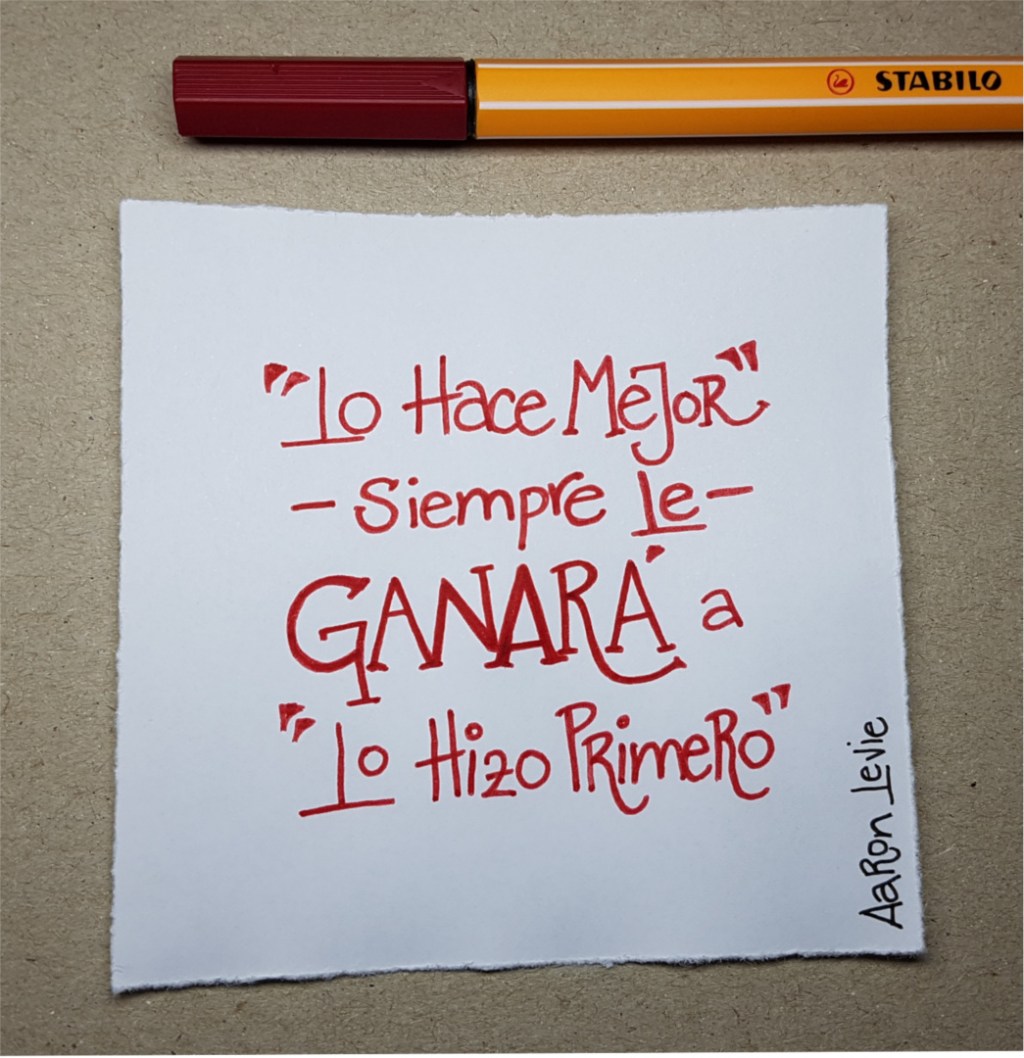 STABILO
"Lo Hace Mejor"
- Siempre Le -
GANARÁ a
"Lo Hizo Primero"
Aaron Levie